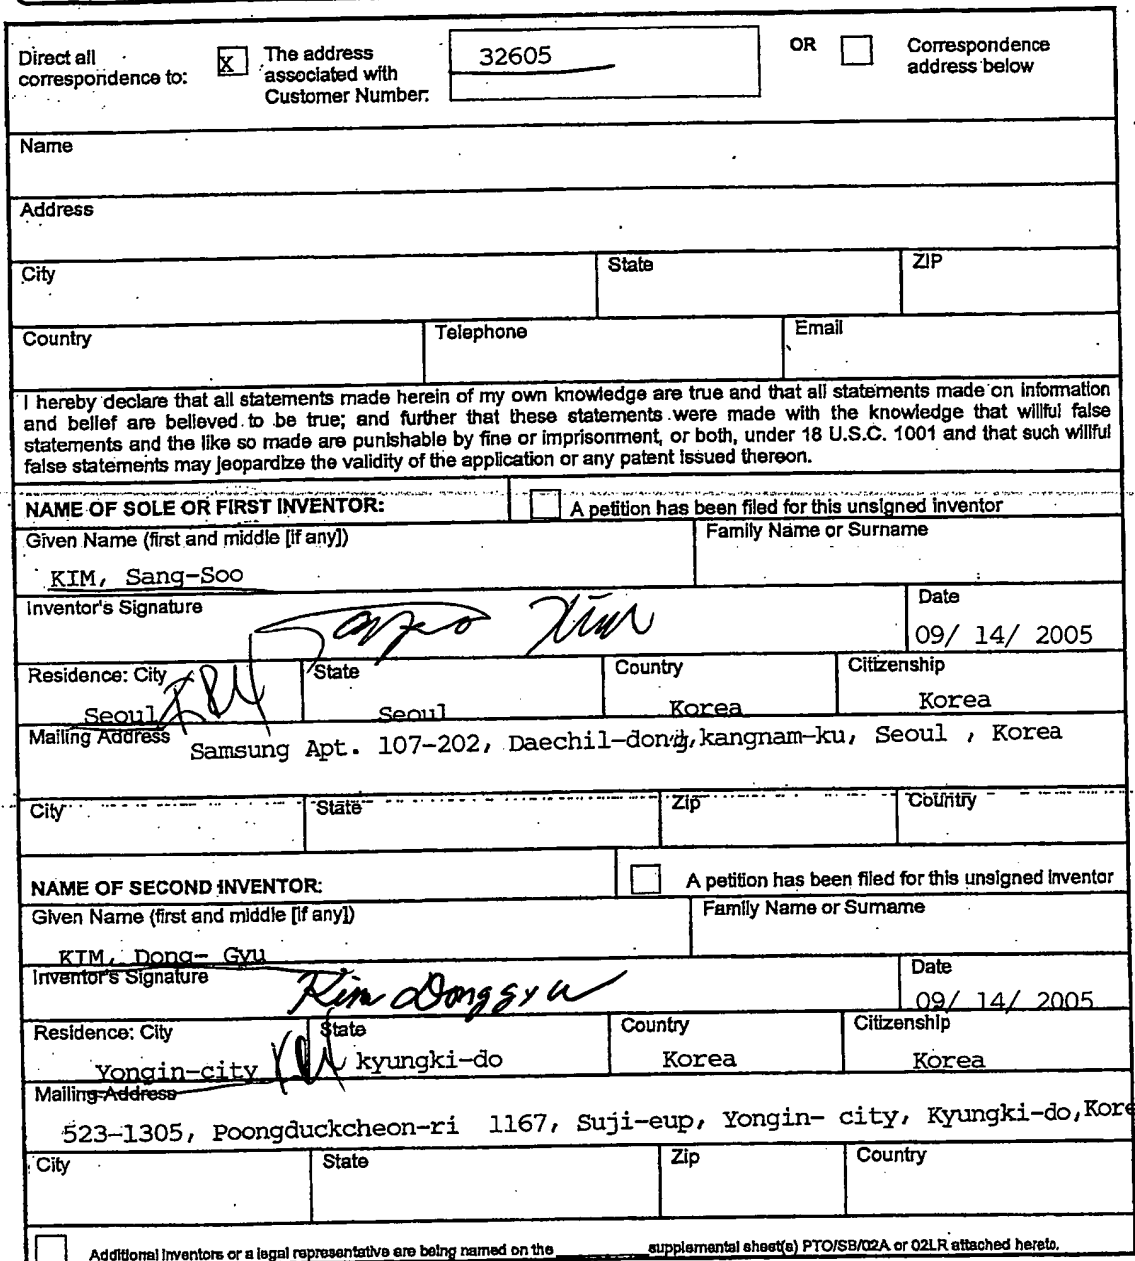 Direct all correspondence to: X The address associated with Customer Number: 32605 OR Correspondence address below
Name
Address
City State ZIP
Country Telephone Email
I hereby declare that all statements made herein of my own knowledge are true and that all statements made on information
and belief are believed to be true; and further that these statements were made with the knowledge that willful false
statements and the like so made are punishable by fine or imprisonment, or both, under 18 U.S.C. 1001 and that such willful
false statements may jeopardize the validity of the application or any patent issued thereon.
NAME OF SOLE OR FIRST INVENTOR: A petition has been filed for this unsigned inventor
Given Name (first and middle [if any]) Family Name or Surname
KIM, Sang-Soo
Inventor's Signature Date
Kim 09/ 14/ 2005
Residence: City State Country Citizenship
Seoul Seoul Korea Korea
Mailing Address Samsung Apt. 107-202, Daechil-dong,kangnam-ku, Seoul , Korea
City State Zip Country
NAME OF SECOND INVENTOR: A petition has been filed for this unsigned inventor
Given Name (first and middle [if any]) Family Name or Surname
KIM, Dong- Gyu
Inventor's Signature Date
Kim Donggyu 09/ 14/ 2005
Residence: City State Country Citizenship
Yongin-city kyungki-do Korea Korea
Mailing Address
523-1305, Poongduckcheon-ri 1167, Suji-eup, Yongin- city, Kyungki-do,Kore
City State Zip Country
Additional inventors or a legal representative are being named on the supplemental sheet(s) PTO/SB/02A or 02LR attached hereto.